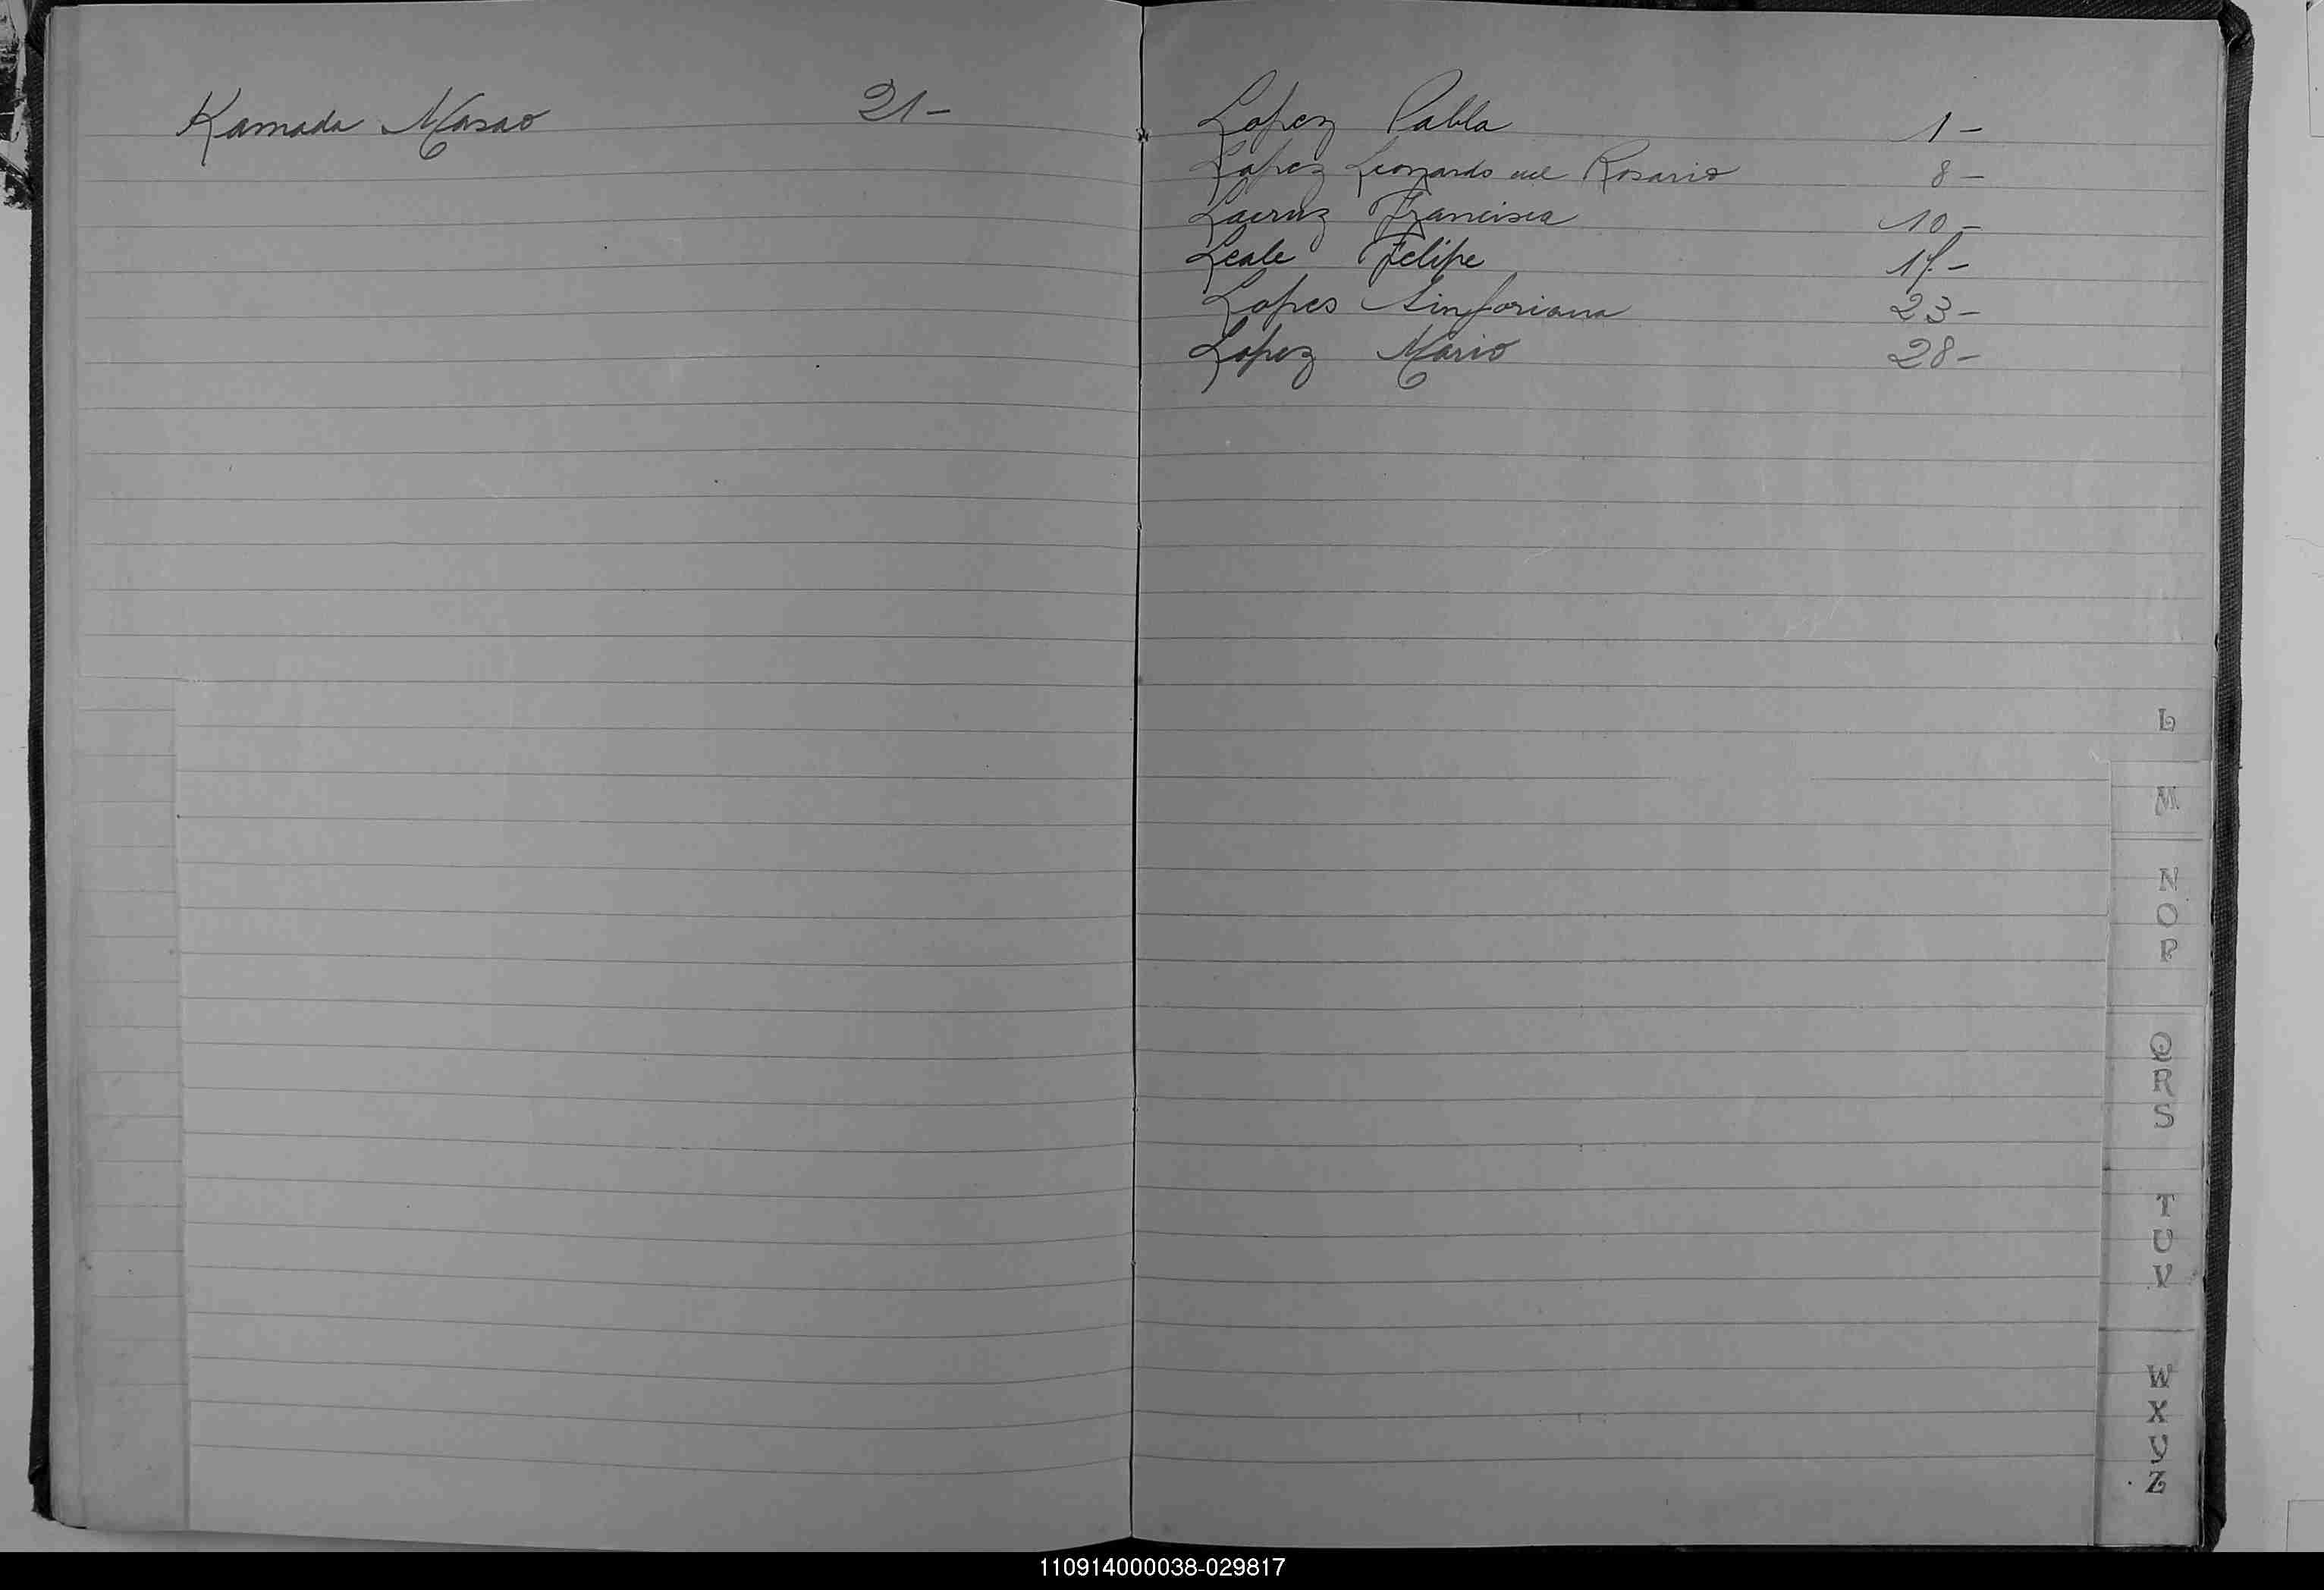 Kamada Masao 21-
Lopez Pabla 1-
Lopez Leonardo Rosario 8-
Lacruz Francisca 10-
Leale Felipe 17-
Lopes Sinforiana 23-
Lopez Mario 28-
L
M
N
O
P
Q
R
S
T
U
V
W
X
Y
Z
110914000038-029817